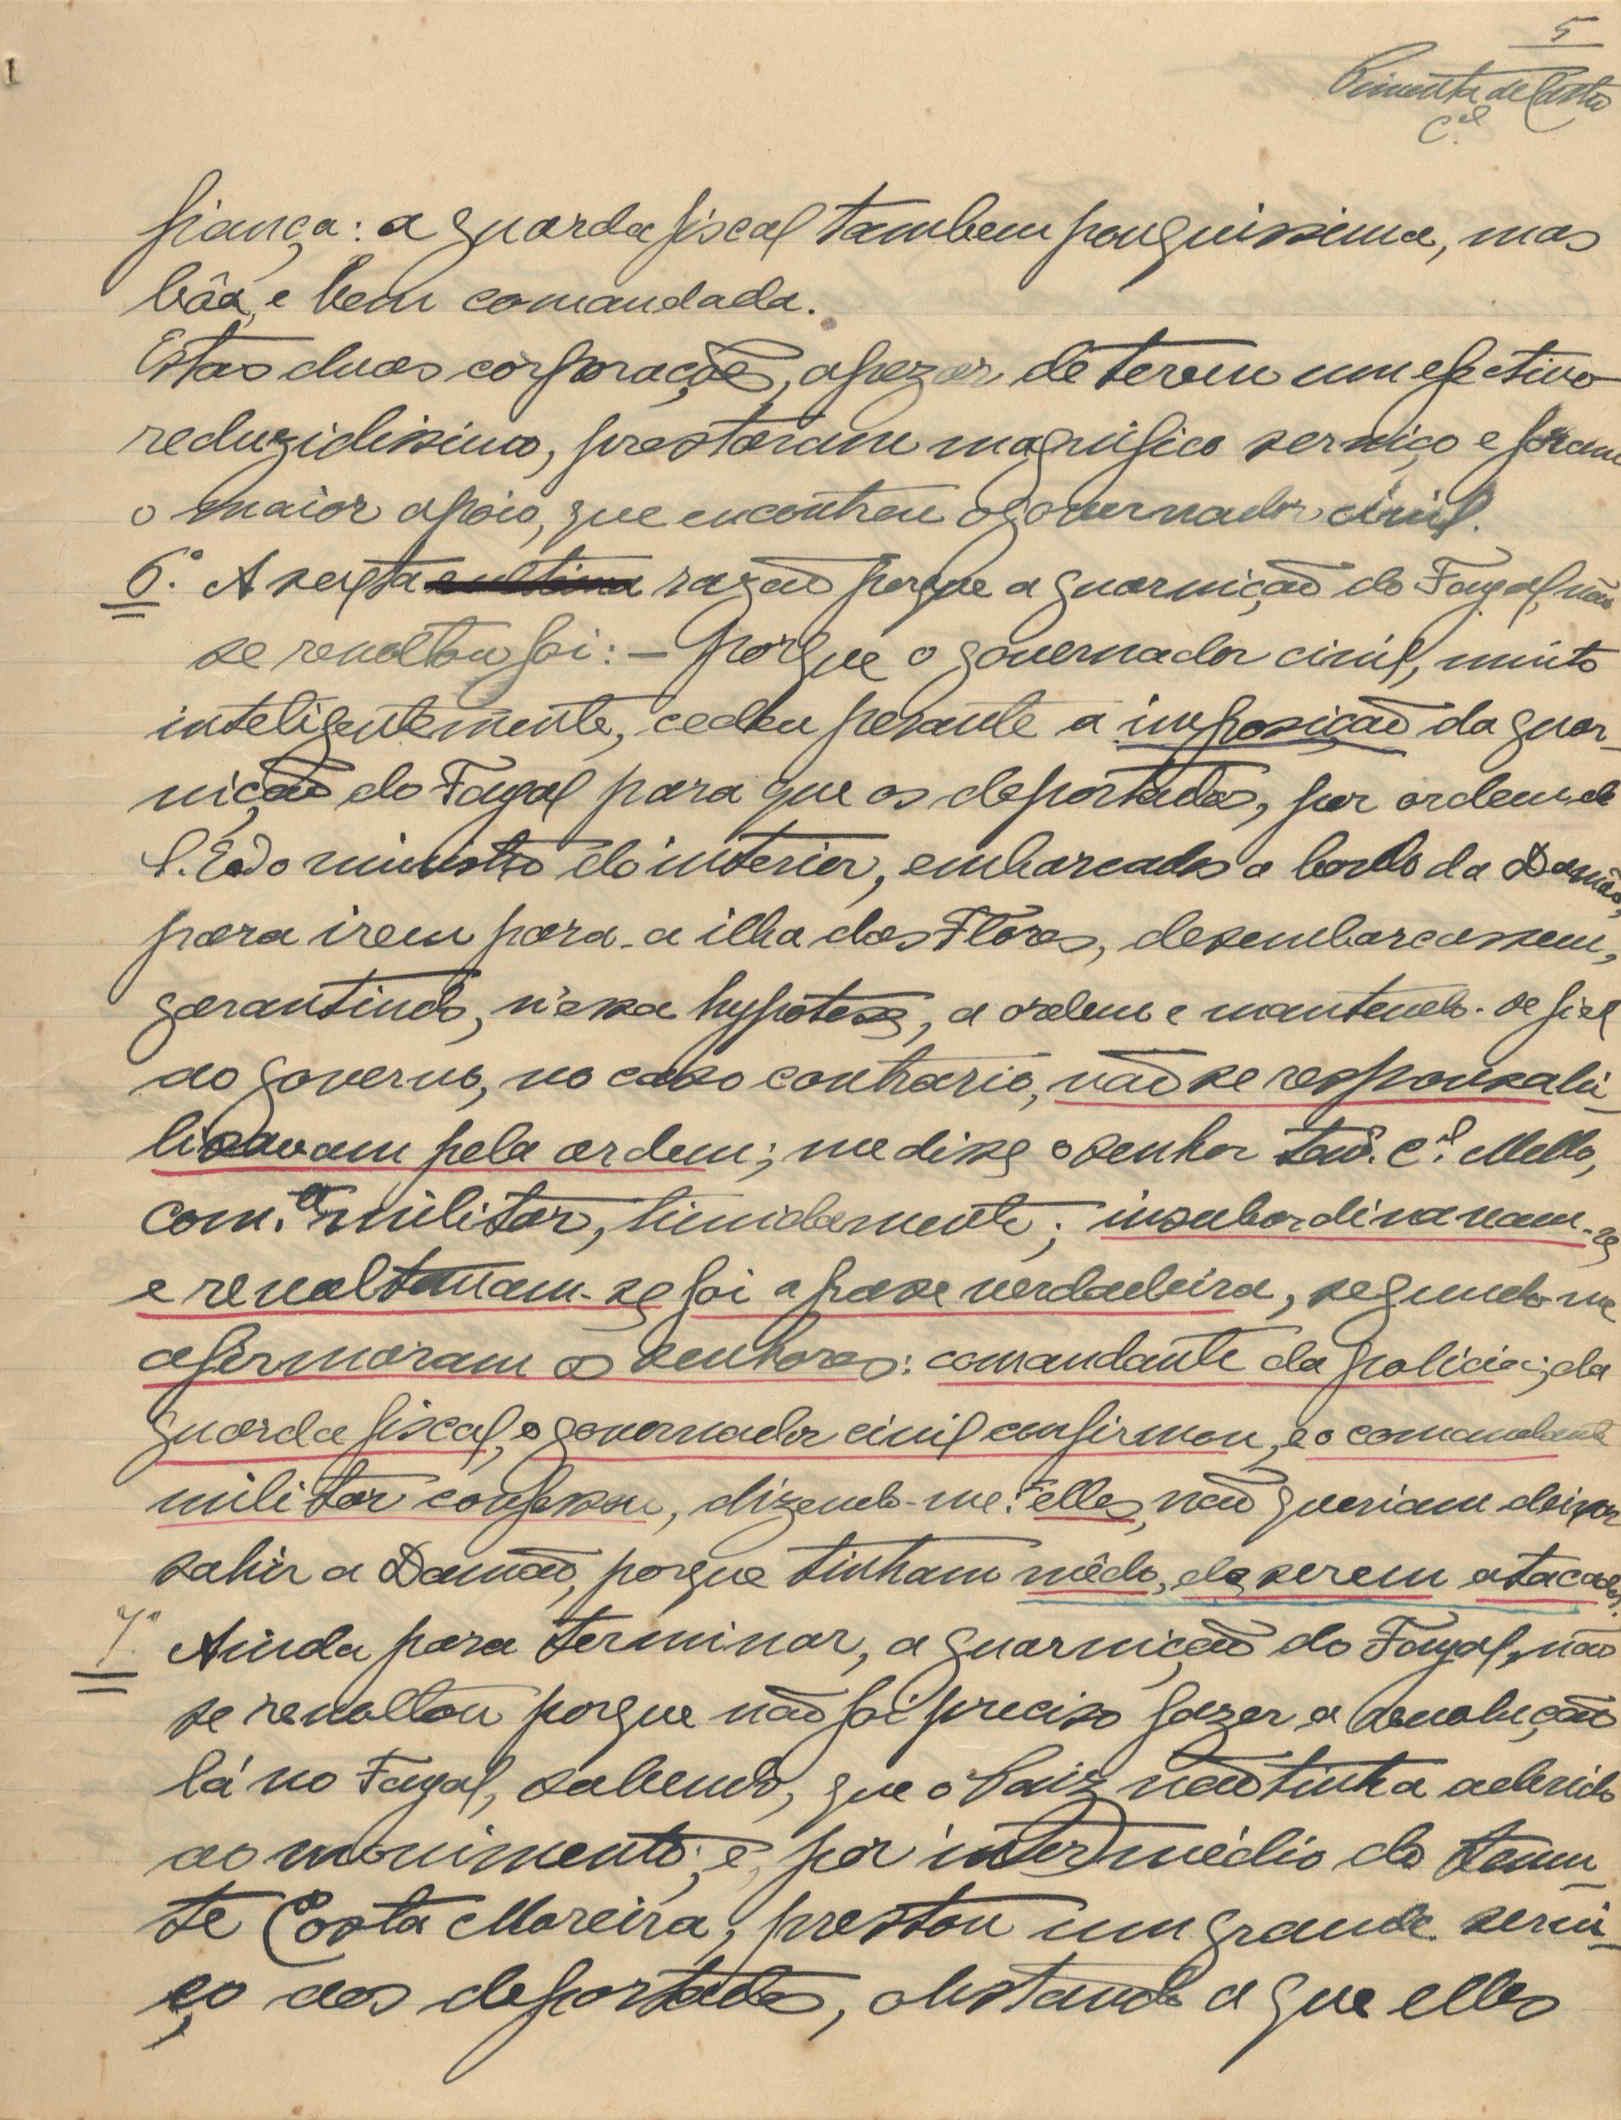 5
Pimenta de Castro
C.el
fiança: a guarda fiscal tambem pouquissima, mas
bôa, e bem comandada.
Estas duas corporações, apezar de terem um efectivo
reduzidissimo, prestaram magnifico serviço e foram
o maior apoio, que encontrou o governador civil.
6.º A sexta e ultima razão porque a guarnição do Fayal, não
se revoltou foi: — Porque o governador civil, muito
inteligentemente, cedeu perante a imposição da guar-
nição do Fayal para que os deportados, por ordem de
S. Ex.ª o ministro do interior, embarcados a bordo da Damão,
para irem para a ilha das Flores, desembarcassem,
garantindo, n'essa hypotese, a ordem e mantendo-se fiel
ao governo, no caso contrario, não se responsabi-
lisavam pela ordem; me disse o senhor Ten. C.el Mello,
com.te militar, timidamente; insubordinavam-se
e revoltavam-se foi a frase verdadeira, segundo me
afirmaram os senhores: comandante da policia; da
guarda fiscal, o governador civil confirmou, e o comandante
militar confessou, dizendo-me: "elles, não queriam deixar
sahir a Damão, porque tinham mêdo, de serem atacados.
7.º Ainda para terminar, a guarnição do Fayal, não
se revoltou porque não foi preciso fazer a revolução
lá no Fayal, sabendo, que o Paiz não tinha aderido
ao movimento; e, por intermédio do tenen-
te Costa Moreira, prestou um grande servi-
ço aos deportados, obstando a que elles